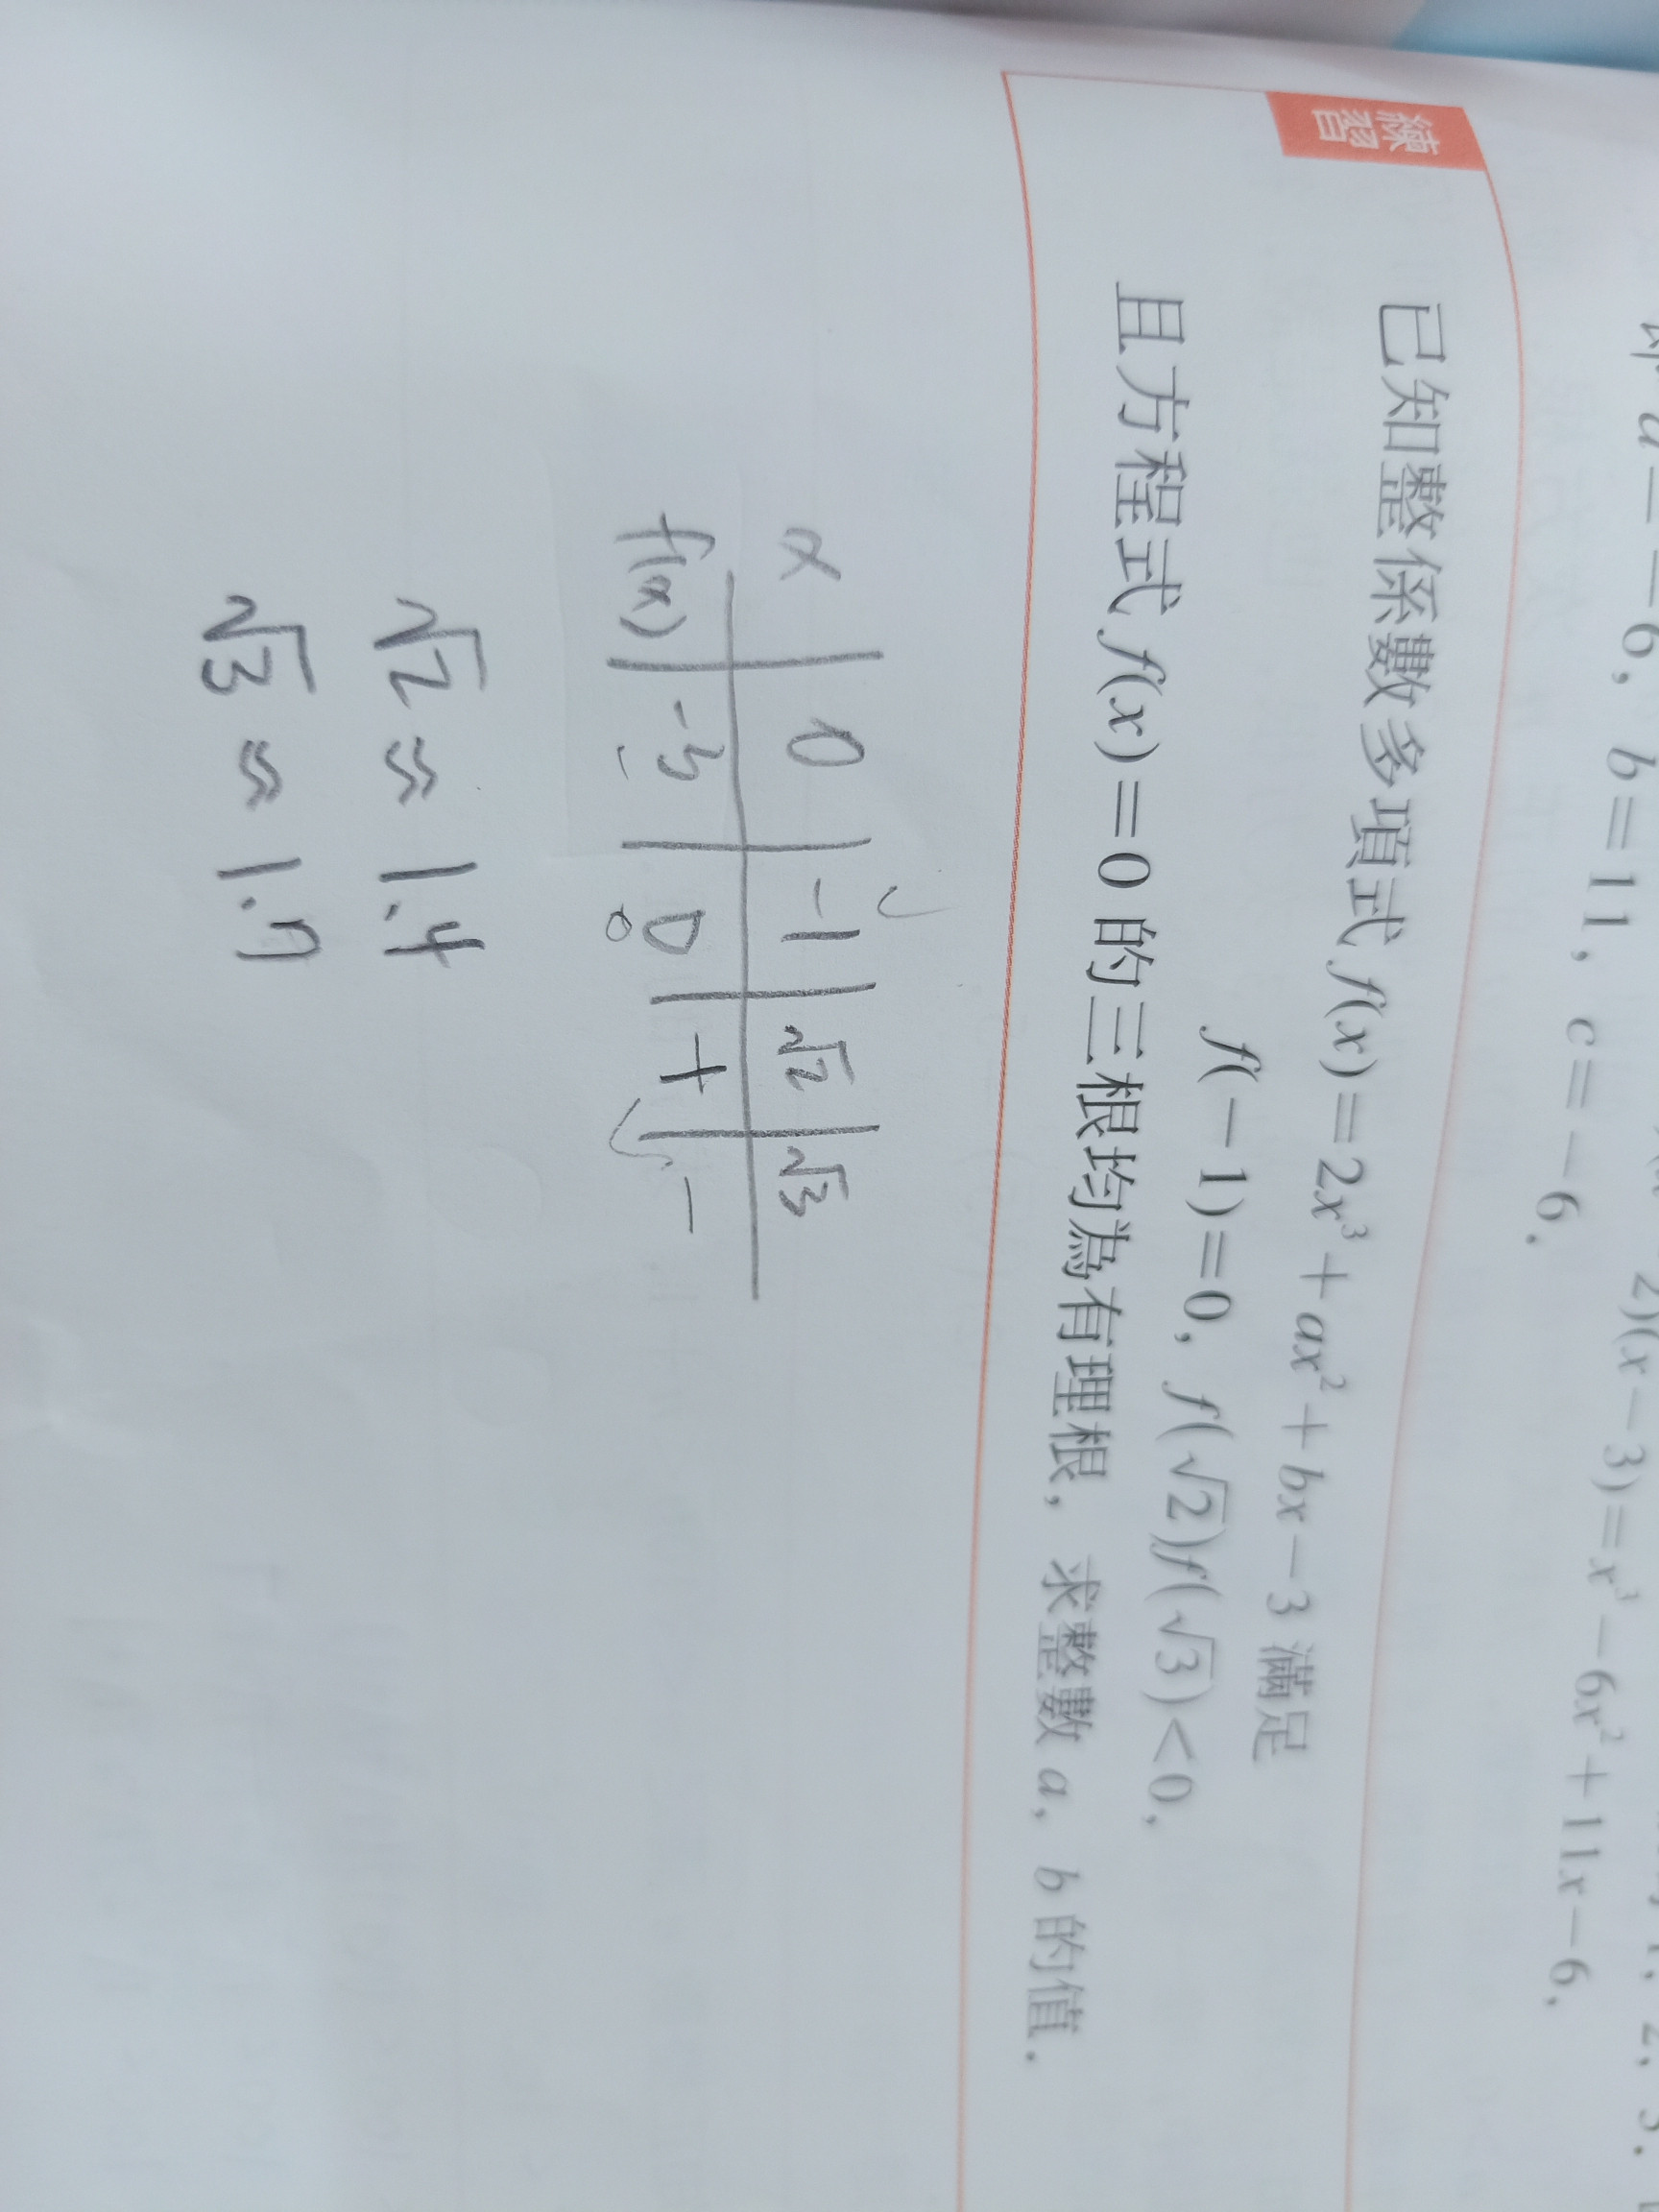 a=-6, b=11, c=-6.
2)(x-3)=x³-6x²+11x-6,
練習
已知整係數多項式 f(x)=2x³+ax²+bx-3 滿足
f(-1)=0, f(√2)f(√3)<0,
且方程式 f(x)=0 的三根均為有理根, 求整數 a, b 的值.
x | 0 | -1 | √2 | √3
f(x) | -3 | 0 | + | -
√2 ≈ 1.4
√3 ≈ 1.7